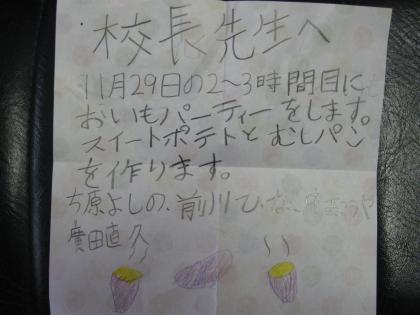 校長先生へ
11月29日の2～3時間目に
おいもパーティーをします。
スイートポテトとむしパン
を作ります。
ち原よしの、前川ひな、
廣田直久